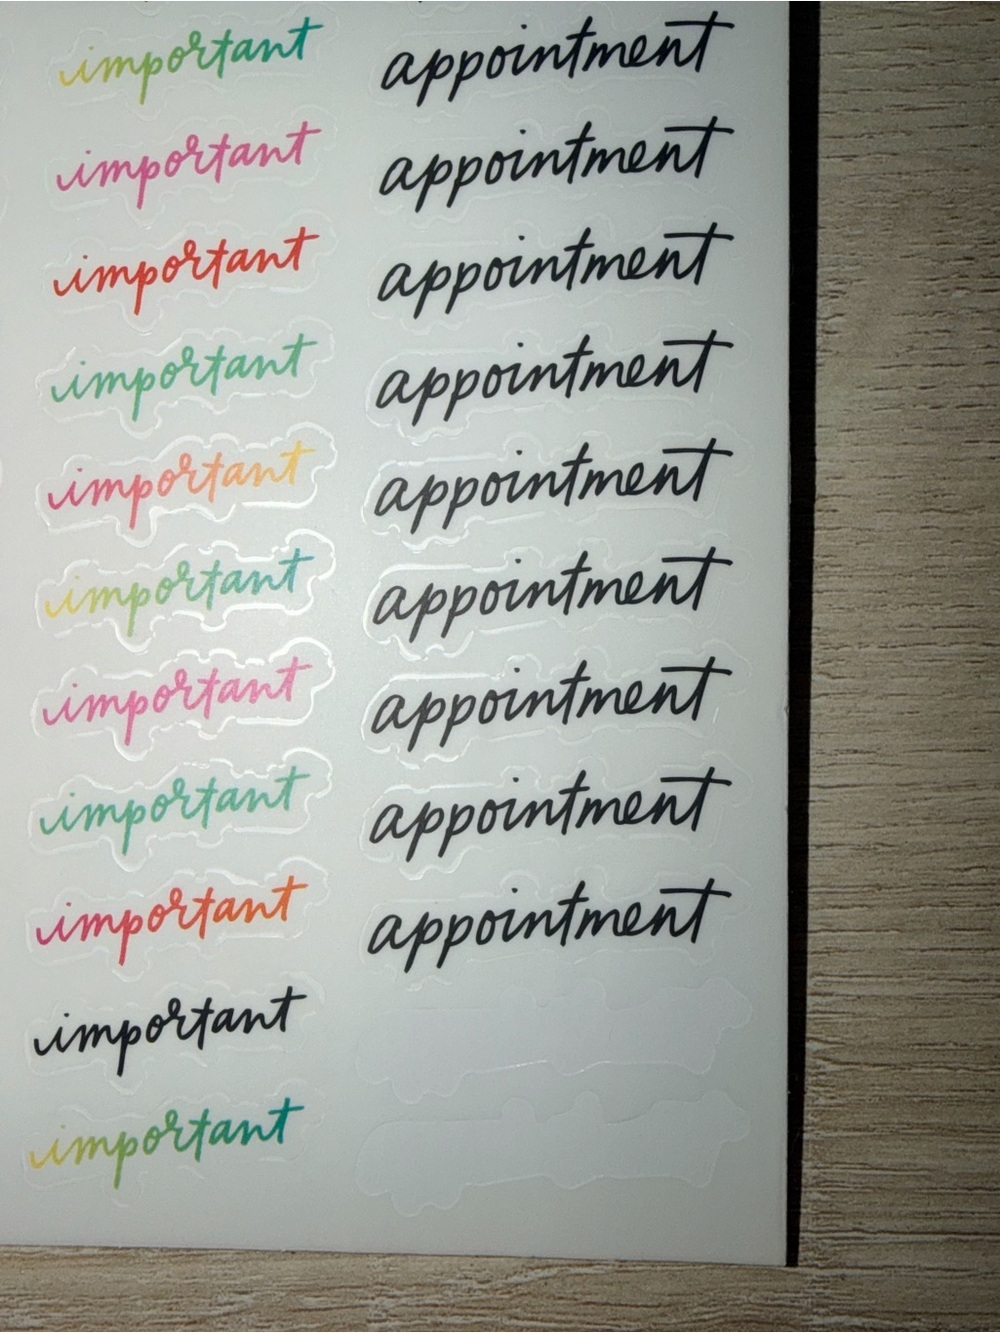 important appointment
important appointment
important appointment
important appointment
important appointment
important appointment
important appointment
important appointment
important appointment
important
important